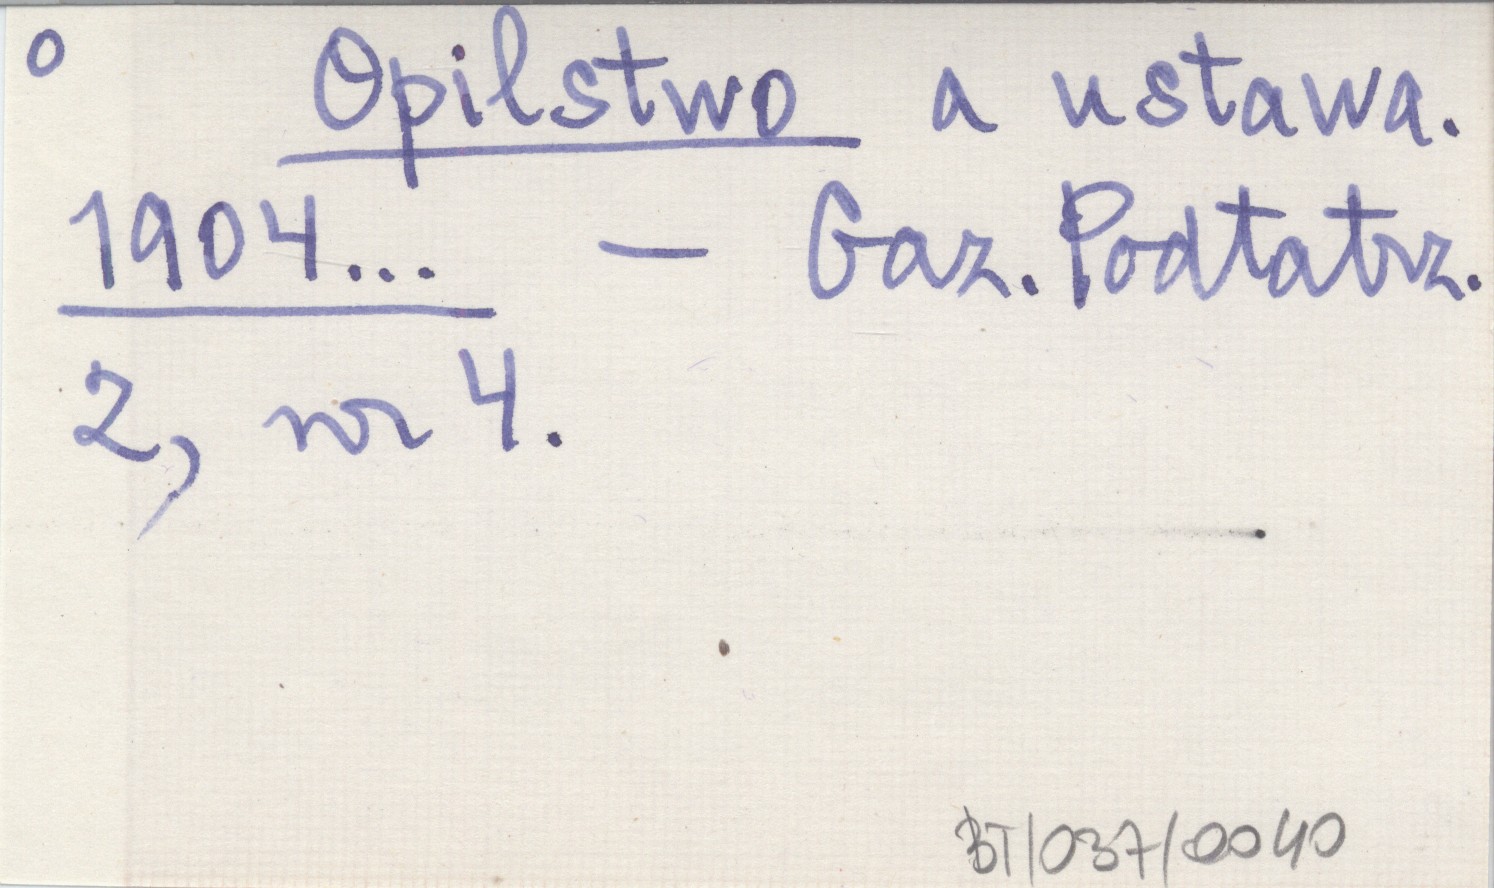 o Opilstwo a ustawa.
1904... — Gaz. Podtatrz.
2, nr 4.
BT/037/0040